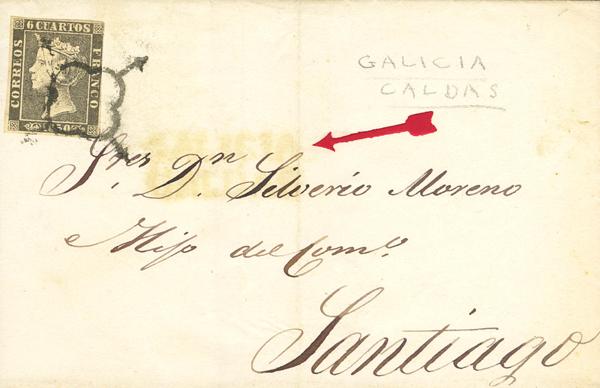 6 CUARTOS
CORREOS
FRANCO
1850
GALICIA
CALDAS
Sres. Dn
D. Silverio Moreno
e Hijo del Como.
Santiago